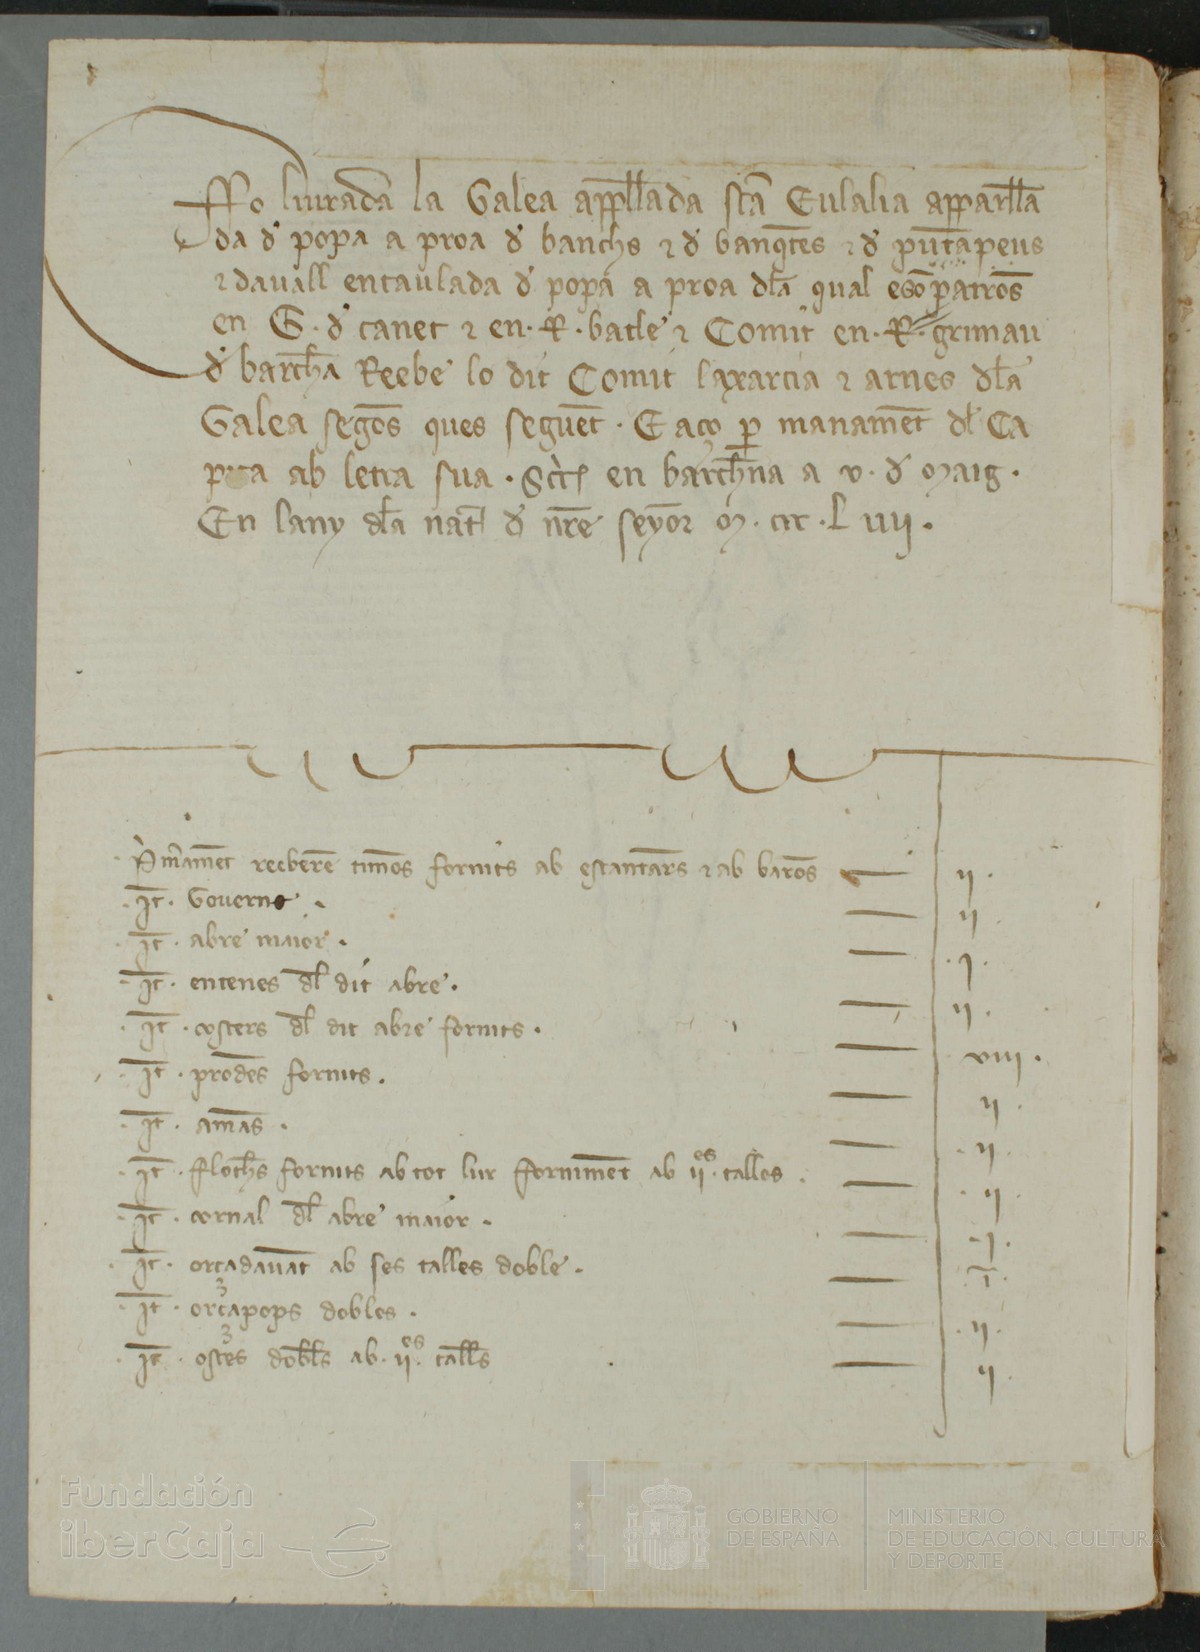 Fo liurada la Galea app̅l̅lada st̅a Eulalia apparel̅l̅a
da d̓ popa a proa d̓ banchs ⁊ d̓ banq̅tes ⁊ d̓ pu̅tapeus
⁊ davall entaulada d̓ popa a proa dl̅a qual eso̅ patro̅s
en G. d̓ canet ⁊ en. R. batle ⁊ Comit en. R. grimau
d̓ barch̅a Reebe lo dit Comit la xarcia ⁊ arnes dl̅a
Galea sego̅s ques segue̅t. E aço p̱ maname̅t dl̓ Ca
pita ab letra sua. Scr̅ en barch̅na a v. d̓ Maig.
En lany dl̅a nat̅ d̓ nr̅e seyo̅r M. ccc. L iiij.
P̓m̓ame̅t reebere̅ timo̅s fornits ab estanta̅rs ⁊ ab baro̅s — ij.
It̅. Governs. — ij
It̅. abre maior. — .j.
It̅. entenes dl̅ dit abre. — ij.
It̅. costers dl̅ dit abre fornits. — viii.
It̅. prode̅s fornits. — ij.
It̅. ama̅s. — .ij.
It̅. floch̅s fornits ab tot lur fornime̅t ab ij.es talles. — .ij.
It̅. cornal dl̅ abre maior. — .j.
It̅. orçadava̅t ab ses talles doble. — .i̅.
It̅. orçapops dobles. — .ij.
It̅. ostes dobl̅s ab. ij.es tall̅s — ij.
Fundación
iberCaja
GOBIERNO
DE ESPAÑA
MINISTERIO
DE EDUCACIÓN, CULTURA
Y DEPORTE